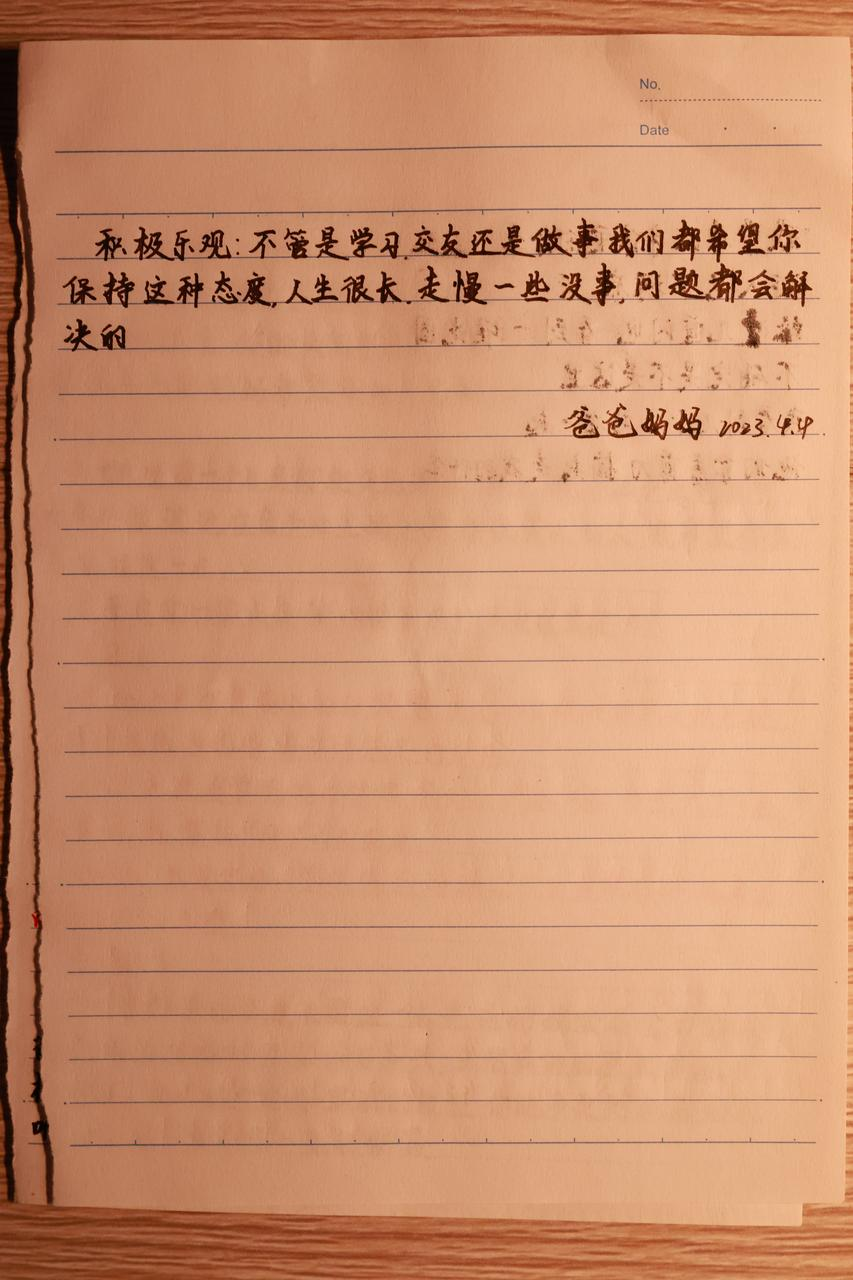 No.
Date
积极乐观:不管是学习,交友还是做事我们都希望你
保持这种态度,人生很长,走慢一些没事,问题都会解
决的
爸爸妈妈 2023.4.4